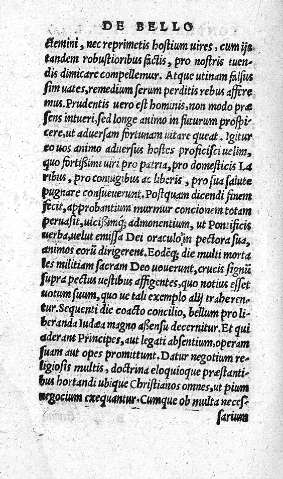 DE BELLO
ctemini, nec reprimetis hostium uires, cum ijs
tandem robustioribus factis, pro nostris tuen-
dis dimicare compellemur. Atque utinam falsus
sim uates, remedium serum perditis rebus affere
mus. Prudentis uero est hominis, non modo præ
sens intueri, sed longe animo in futurum prospi-
cere, ut aduersam fortunam uitare queat. Igitur
eo uos animo aduersus hostes proficisci uelim,
quo fortissimi uiri pro patria, pro domesticis La
ribus, pro coniugibus ac liberis, pro sua salute
pugnare consueuerunt. Postquam dicendi finem
fecit, approbantium murmur concionem totam
peruasit, uicissimq; admonentium, ut Pontificis
uerba, uelut emissa Dei oraculo in pectora sua,
animos eorū dirigerent. Eodēq; die multi morta
les militiam sacram Deo uouerunt, crucis signū
supra pectus uestibus affigentes, quo notius esset
uotum suum, quo ue tali exemplo alij traheren-
tur. Sequenti die coacto concilio, bellum pro li
beranda Iudæa magno assensu decernitur. Et qui
aderant Principes, aut legati absentium, operam
suam aut opes promittunt. Datur negotium re
ligiosis multis, doctrina eloquioque præstanti-
bus hortandi ubique Christianos omnes, ut pium
negocium exequantur. Cumque ob multa neces-
sarium